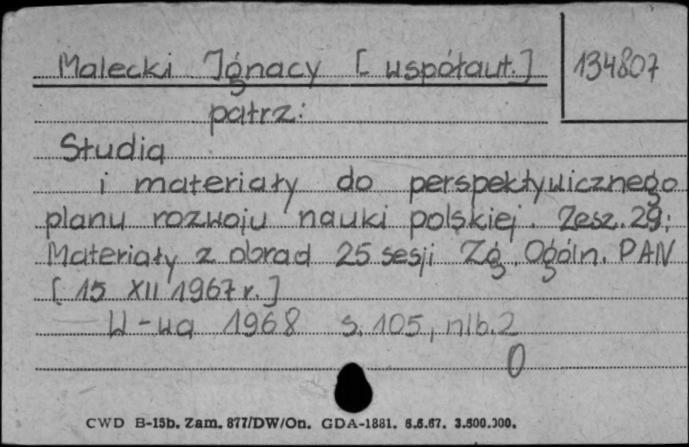 Malecki Ignacy [współaut.] 134807
patrz:
Studia
i materiały do perspektywicznego
planu rozwoju nauki polskiej. Zesz. 29:
Materiały z obrad 25 sesji Zg. Ogóln. PAN
[15 XII 1967 r.]
W-wa 1968 s. 105, nlb. 2
0
CWD B-15b. Zam. 877/DW/On. GDA-1881. 6.6.67. 3.500.000.